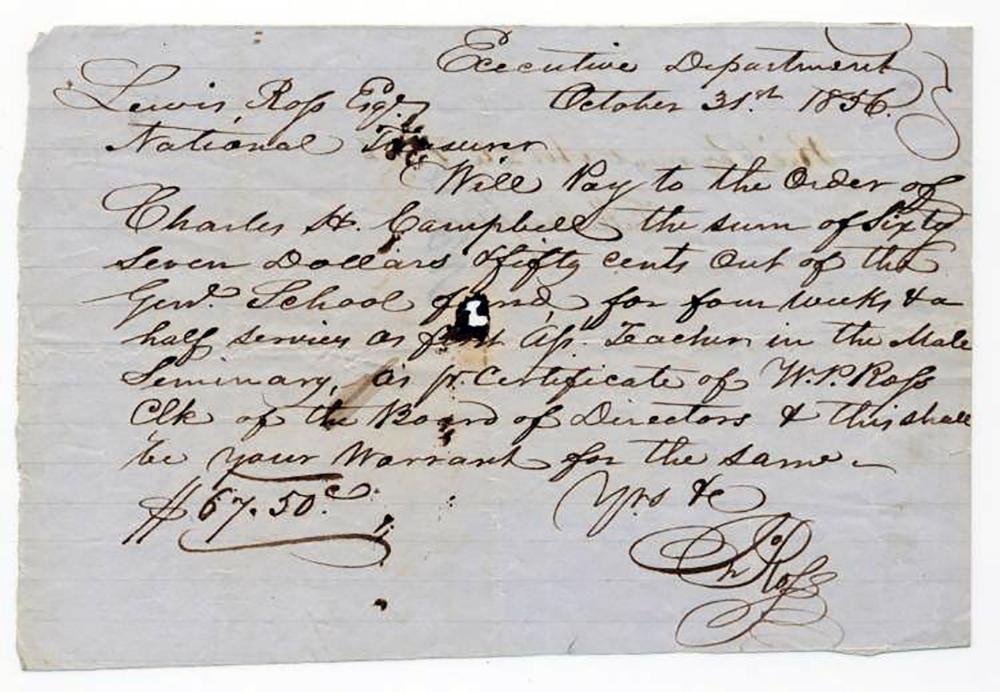 Executive Department
October 31st. 1856.
Lewis Ross Esqr.
National Treasurer
Will Pay to the Order of
Charles H. Campbell the sum of Sixty
Seven Dollars & fifty cents Out of the
Genl. School fund, for four weeks & a
half services as first Ass. Teacher in the Male
Seminary, as pr. Certificate of W. P. Ross
Clk of the Board of Directors & this shall
be your Warrant for the same –
$67.50c.
Yrs &c
Jno Ross